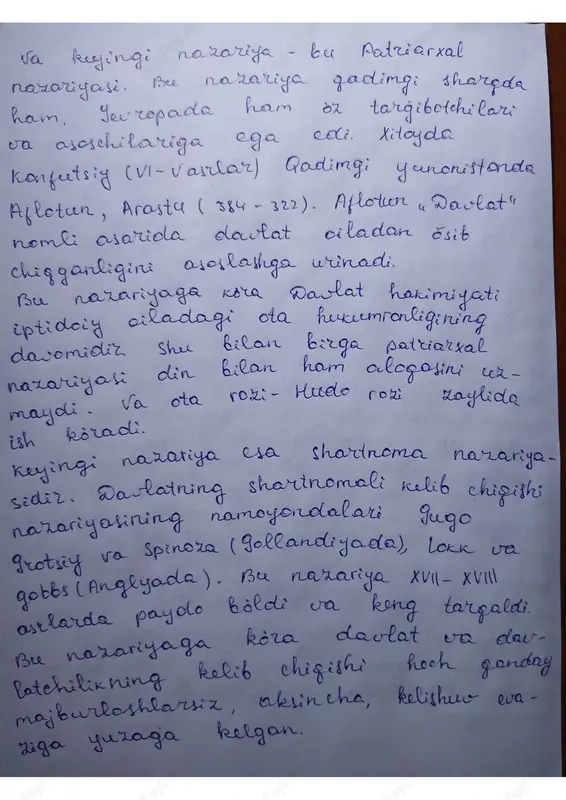 Va keyingi nazariya - bu Patriarxal
nazariyasi. Bu nazariya qadimgi sharqda
ham, Yevropada ham öz targ'ibotchilari
va asoschilariga ega edi. Xitoyda
Konfutsiy (VI-V asrlar) Qadimgi yunonistonda
Aflotun, Arastu (384-322). Aflotun „Davlat"
nomli asarida davlat oiladan ösib
chiqqanligini asoslashga urinadi.
Bu nazariyaga köra Davlat hokimiyati
iptidoiy oiladagi ota hukumronligining
davomidir shu bilan birga patriarxal
nazariyasi din bilan ham aloqasini uz-
maydi. Va ota rozi - Hudo rozi zaylida
ish köradi.
Keyingi nazariya esa shartnoma nazariya-
sidir. Davlatning shartnomali kelib chiqishi
nazariyasining namoyondalari Gugo
Grotsiy va Spinoza (Gollandiyada), Lokk va
gobbs (Anglyada). Bu nazariya XVII-XVIII
asrlarda paydo böldi va keng tarqaldi.
Bu nazariyaga köra davlat va dav-
latchilikning kelib chiqishi hech qanday
majburlashlarsiz, aksincha, kelishuv eva-
ziga yuzaga kelgan.